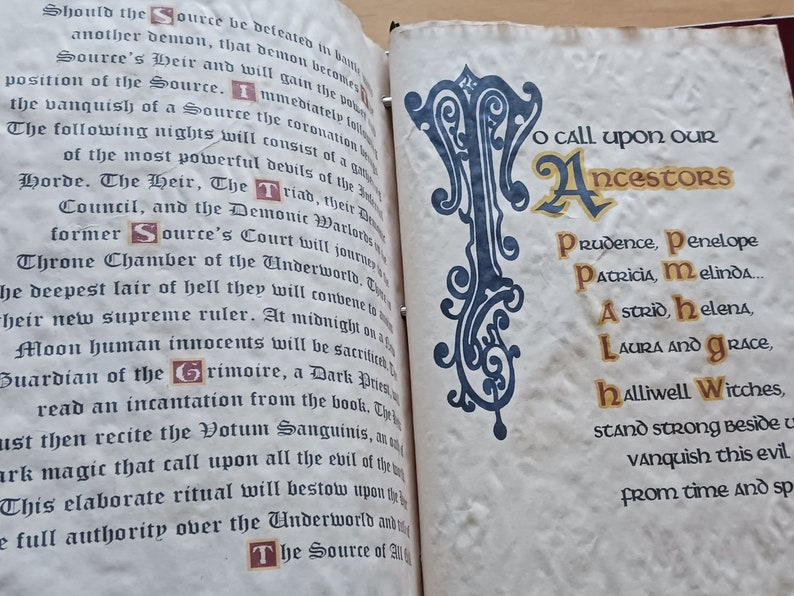 Should the Source be defeated in battle
another demon, that demon becomes
Source's Heir and will gain the power
position of the Source. Immediately
the vanquish of a Source the coronation
The following nights will consist of a
of the most powerful devils of the
Horde. The Heir, The Triad, their
Council, and the Demonic Warlords
former Source's Court will journey to the
Throne Chamber of the Underworld.
the deepest lair of hell they will convene to
their new supreme ruler. At midnight on a
Moon human innocents will be sacrificed.
Guardian of the Grimoire, a Dark Priest,
read an incantation from the book. The
must then recite the Votum Sanguinis, an
dark magic that call upon all the evil of the
This elaborate ritual will bestow upon the
full authority over the Underworld and
The Source of All
To call upon our
Ancestors
Prudence, Penelope
Patricia, Melinda...
Astrid, Helena,
Laura and Grace,
Halliwell Witches,
stand strong beside
vanquish this evil
from time and